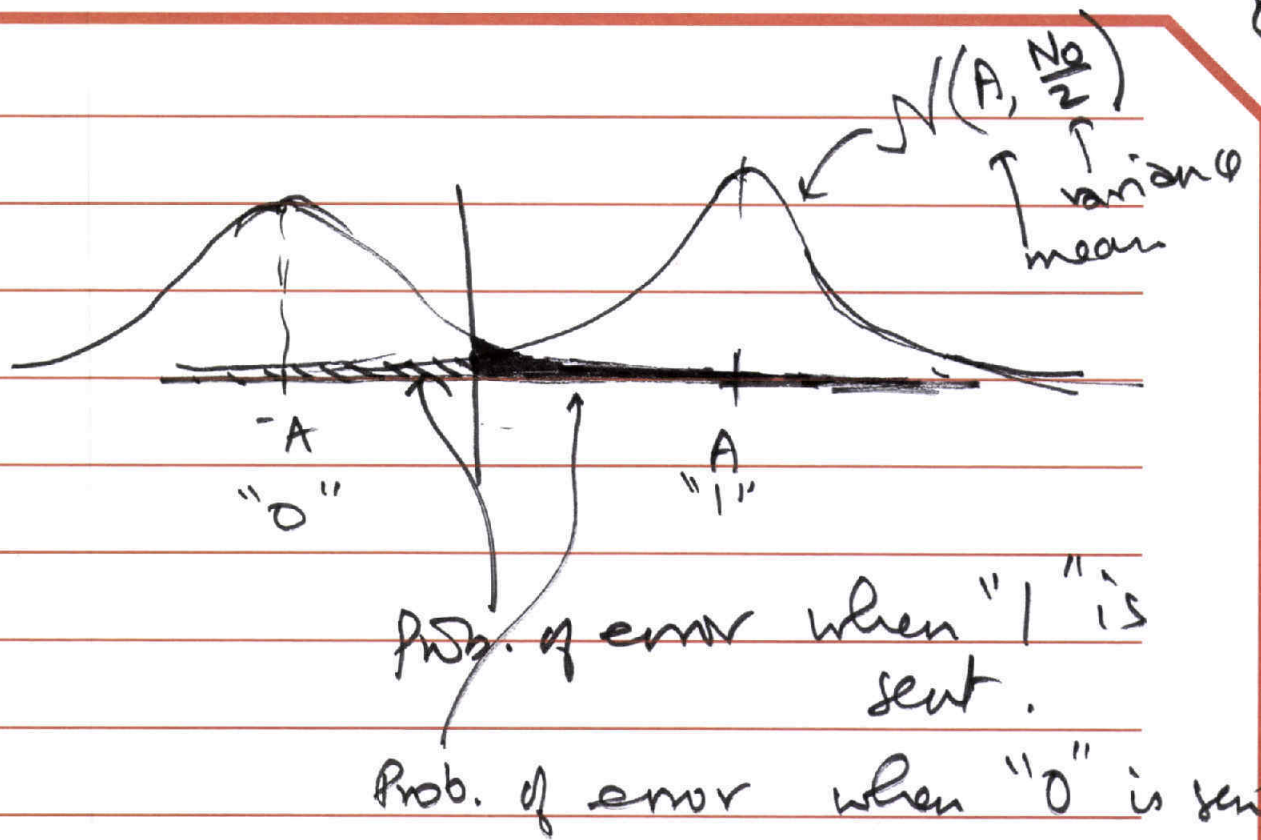 N(A, No/2)
variance
mean
-A
A
"0"
"1"
Prob. of error when "1" is
sent.
Prob. of error when "0" is sen